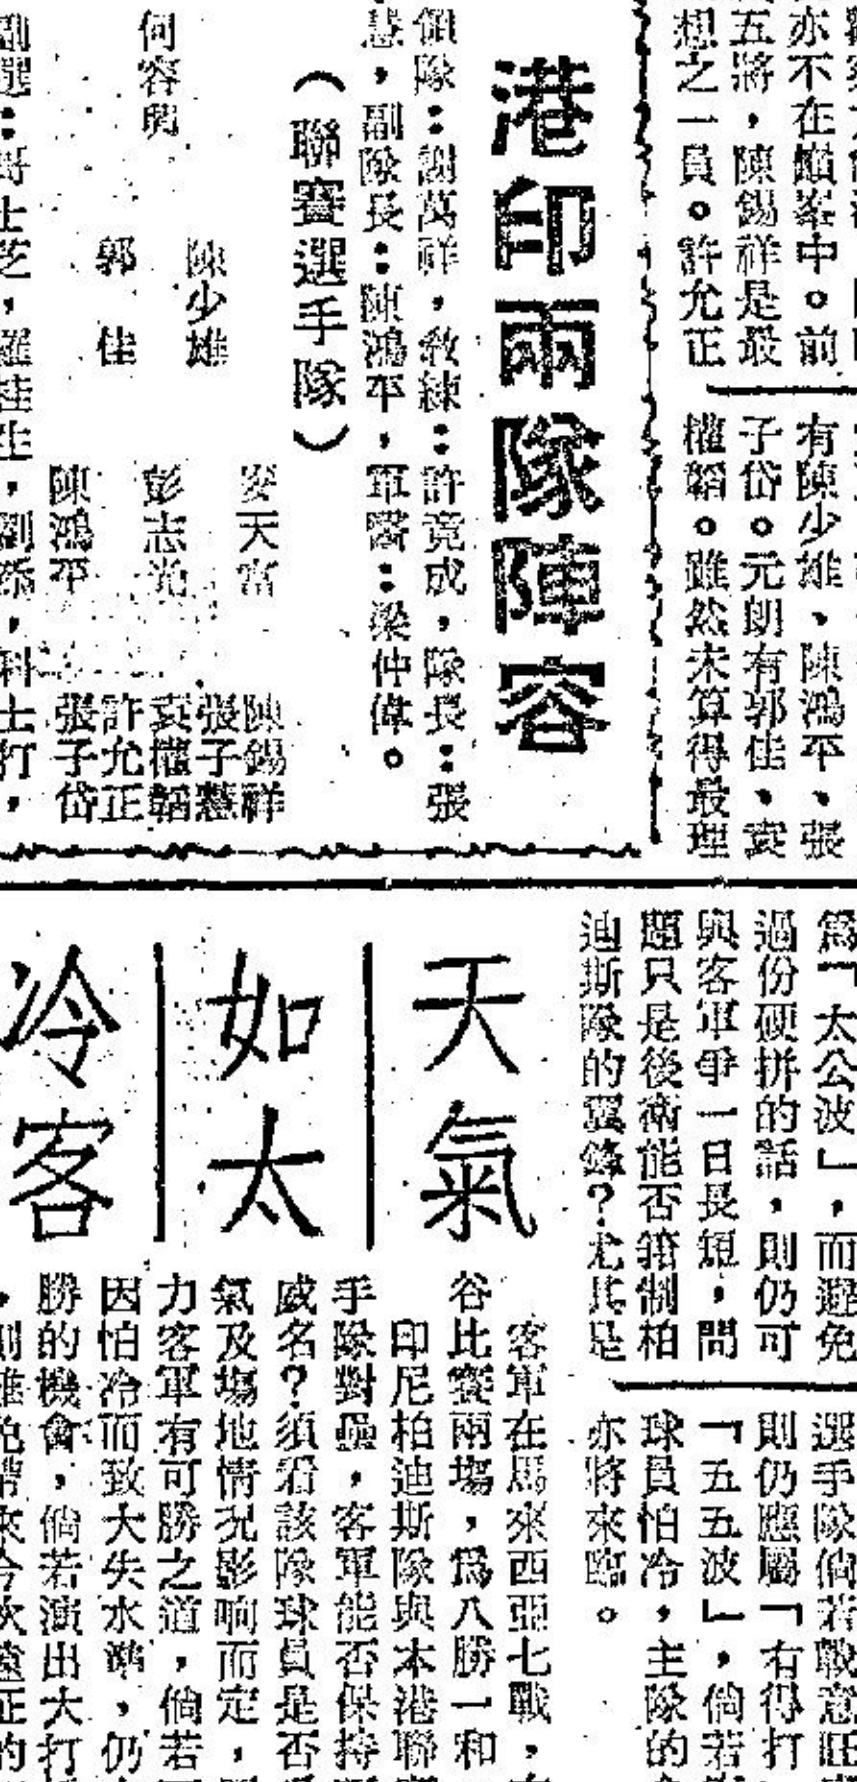 亦不在巔峯中。前
五將，陳錫祥是最
想之一員。許允正
有陳少雄、陳鴻平、張
子岱。元朗有郭佳、袁
權韜。雖然未算得最理
港印兩隊陣容
領隊：謝萬祥，敎練：許竟成，隊長：張
慧，副隊長：陳鴻平，軍醫：梁仲偉。
（聯賽選手隊）
陳錫祥
麥天富
張子慧
陳少雄
彭志光
袁權韜
何容興
許允正
郭佳
陳鴻平
張子岱
副選：哥士芝，羅桂生，劉添，科士打，
爲「太公波」，而避免
過份硬拼的話，則仍可
與客軍爭一日長短，問
題只是後衛能否箝制柏
迪斯隊的翼鋒？尤其是
選手隊倘若戰意旺
則仍應屬「有得打
「五五波」，倘若
球員怕冷，主隊的
亦將來臨。
天氣
如太
冷客
客軍在馬來西亞七戰，
谷比賽兩塲，爲八勝一和
印尼柏迪斯隊與本港聯
手隊對壘，客軍能否保持
威名？須看該隊球員是否
氣及塲地情況影响而定，
力客軍有可勝之道，倘若
因怕冷而致大失水準，仍
勝的機會，倘若演出大打